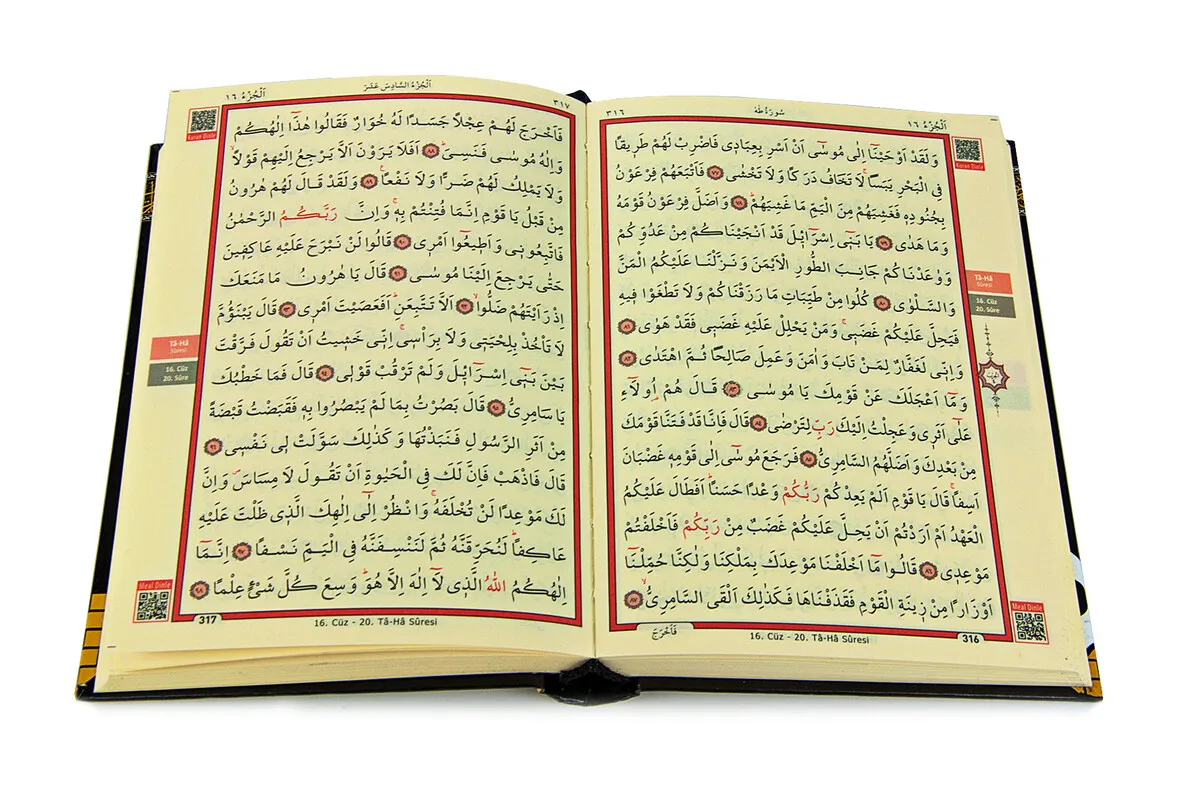 اَلْجُزْءُ ١٦
سُورَةُ طٰهٰ
٣١٦
وَلَقَدْ اَوْحَيْنَٓا اِلٰى مُوسٰٓى اَنْ اَسْرِ بِعِبَادٖى فَاضْرِبْ لَهُمْ طَرٖيقًا
فِى الْبَحْرِ يَبَسًاۙ لَا تَخَافُ دَرَكًا وَلَا تَخْشٰى ﴿٧٧﴾ فَاَتْبَعَهُمْ فِرْعَوْنُ
بِجُنُودِهٖ فَغَشِيَهُمْ مِنَ الْيَمِّ مَا غَشِيَهُمْۜ ﴿٧٨﴾ وَاَضَلَّ فِرْعَوْنُ قَوْمَهُ
وَمَا هَدٰى ﴿٧٩﴾ يَا بَنٖٓى اِسْرَٓائٖلَ قَدْ اَنْجَيْنَاكُمْ مِنْ عَدُوِّكُمْ
وَوٰعَدْنَاكُمْ جَانِبَ الطُّورِ الْاَيْمَنَ وَنَزَّلْنَا عَلَيْكُمُ الْمَنَّ
وَالسَّلْوٰى ﴿٨٠﴾ كُلُوا مِنْ طَيِّبَاتِ مَا رَزَقْنَاكُمْ وَلَا تَطْغَوْا فٖيهِ
فَيَحِلَّ عَلَيْكُمْ غَضَبٖىۚ وَمَنْ يَحْلِلْ عَلَيْهِ غَضَبٖى فَقَدْ هَوٰى ﴿٨١﴾
وَاِنّٖى لَغَفَّارٌ لِمَنْ تَابَ وَاٰمَنَ وَعَمِلَ صَالِحًا ثُمَّ اهْتَدٰى ﴿٨٢﴾
وَمَٓا اَعْجَلَكَ عَنْ قَوْمِكَ يَا مُوسٰى ﴿٨٣﴾ قَالَ هُمْ اُو۬لَٓاءِ
عَلٰٓى اَثَرٖى وَعَجِلْتُ اِلَيْكَ رَبِّ لِتَرْضٰى ﴿٨٤﴾ قَالَ فَاِنَّا قَدْ فَتَنَّا قَوْمَكَ
مِنْ بَعْدِكَ وَاَضَلَّهُمُ السَّامِرِىُّ ﴿٨٥﴾ فَرَجَعَ مُوسٰٓى اِلٰى قَوْمِهٖ غَضْبَانَ
اَسِفًاۚ قَالَ يَا قَوْمِ اَلَمْ يَعِدْكُمْ رَبُّكُمْ وَعْدًا حَسَنًاۜ اَفَطَالَ عَلَيْكُمُ
الْعَهْدُ اَمْ اَرَدْتُمْ اَنْ يَحِلَّ عَلَيْكُمْ غَضَبٌ مِنْ رَبِّكُمْ فَاَخْلَفْتُمْ
مَوْعِدٖى ﴿٨٦﴾ قَالُوا مَٓا اَخْلَفْنَا مَوْعِدَكَ بِمَلْكِنَا وَلٰكِنَّا حُمِّلْنَٓا
اَوْزَارًا مِنْ زٖينَةِ الْقَوْمِ فَقَذَفْنَاهَا فَكَذٰلِكَ اَلْقَى السَّامِرِىُّۙ ﴿٨٧﴾
316
16. Cüz - 20. Tâ-Hâ Sûresi
فَاَخْرَجَ
Kuran Dinle
Tâ-Hâ
Sûresi
16. Cüz
20. Sûre
Meal Dinle
٣١٧
اَلْجُزْءُ السَّادِسَ عَشَرَ
اَلْجُزْءُ ١٦
فَاَخْرَجَ لَهُمْ عِجْلًا جَسَدًا لَهُ خُوَارٌ فَقَالُوا هٰذَٓا اِلٰهُكُمْ
وَاِلٰهُ مُوسٰى فَنَسِىَۜ ﴿٨٨﴾ اَفَلَا يَرَوْنَ اَلَّا يَرْجِعُ اِلَيْهِمْ قَوْلًاۙ
وَلَا يَمْلِكُ لَهُمْ ضَرًّا وَلَا نَفْعًا۟ ﴿٨٩﴾ وَلَقَدْ قَالَ لَهُمْ هٰرُونُ
مِنْ قَبْلُ يَا قَوْمِ اِنَّمَا فُتِنْتُمْ بِهٖۚ وَاِنَّ رَبَّكُمُ الرَّحْمٰنُ
فَاتَّبِعُونٖى وَاَطٖيعُٓوا اَمْرٖى ﴿٩٠﴾ قَالُوا لَنْ نَبْرَحَ عَلَيْهِ عَاكِفٖينَ
حَتّٰى يَرْجِعَ اِلَيْنَا مُوسٰى ﴿٩١﴾ قَالَ يَا هٰرُونُ مَا مَنَعَكَ
اِذْ رَاَيْتَهُمْ ضَلُّواۙ ﴿٩٢﴾ اَلَّا تَتَّبِعَنِۜ اَفَعَصَيْتَ اَمْرٖى ﴿٩٣﴾ قَالَ يَبْنَؤُ۬مَّ
لَا تَأْخُذْ بِلِحْيَتٖى وَلَا بِرَأْسٖىۚ اِنّٖى خَشٖيتُ اَنْ تَقُولَ فَرَّقْتَ
بَيْنَ بَنٖٓى اِسْرَٓائٖلَ وَلَمْ تَرْقُبْ قَوْلٖى ﴿٩٤﴾ قَالَ فَمَا خَطْبُكَ
يَا سَامِرِىُّ ﴿٩٥﴾ قَالَ بَصُرْتُ بِمَا لَمْ يَبْصُرُوا بِهٖ فَقَبَضْتُ قَبْضَةً
مِنْ اَثَرِ الرَّسُولِ فَنَبَذْتُهَا وَكَذٰلِكَ سَوَّلَتْ لٖى نَفْسٖى ﴿٩٦﴾
قَالَ فَاذْهَبْ فَاِنَّ لَكَ فِى الْحَيٰوةِ اَنْ تَقُولَ لَا مِسَاسَ وَاِنَّ
لَكَ مَوْعِدًا لَنْ تُخْلَفَهُۚ وَانْظُرْ اِلٰٓى اِلٰهِكَ الَّذٖى ظَلْتَ عَلَيْهِ
عَاكِفًاۜ لَنُحَرِّقَنَّهُ ثُمَّ لَنَنْسِفَنَّهُ فِى الْيَمِّ نَسْفًا ﴿٩٧﴾ اِنَّمَٓا
اِلٰهُكُمُ اللّٰهُ الَّذٖى لَٓا اِلٰهَ اِلَّا هُوَۜ وَسِعَ كُلَّ شَىْءٍ عِلْمًا ﴿٩٨﴾
16. Cüz - 20. Tâ-Hâ Sûresi
317
Kuran Dinle
Tâ-Hâ
Sûresi
16. Cüz
20. Sûre
Meal Dinle